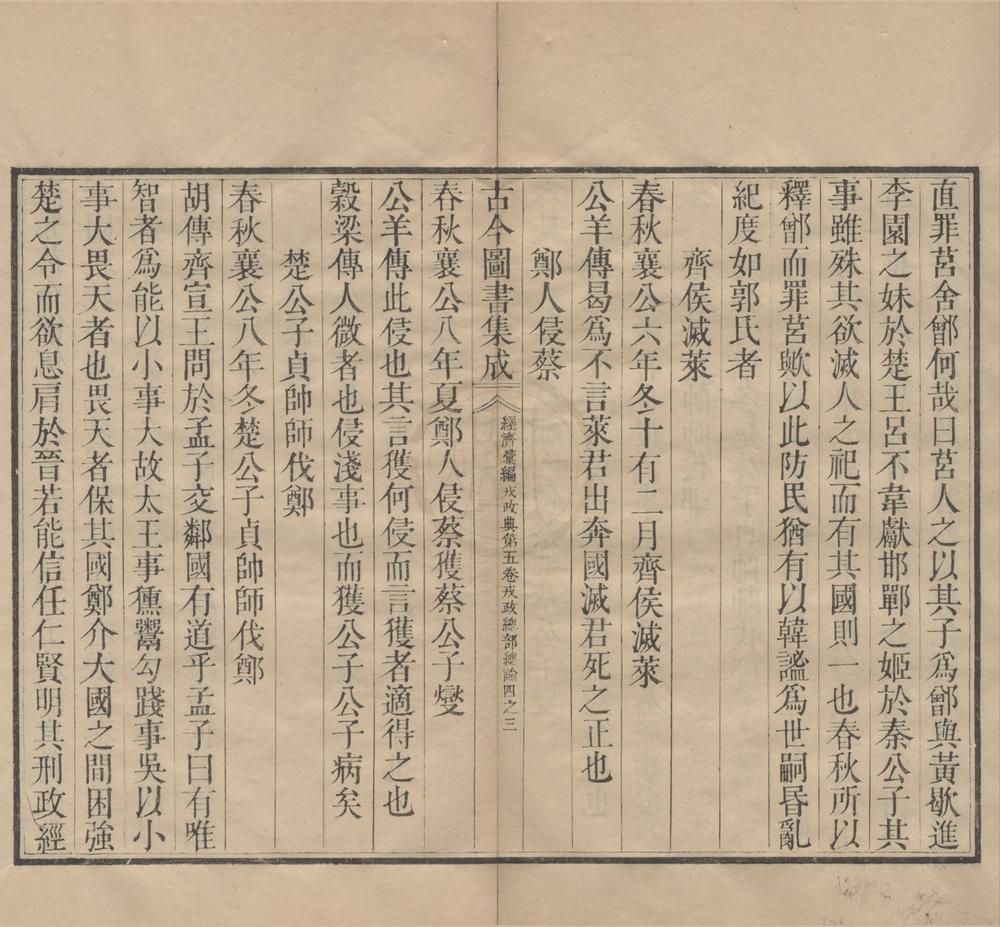 直罪莒舍鄫何哉曰莒人之以其子爲鄫與黃歇進
李園之妹於楚王呂不韋獻邯鄲之姬於秦公子其
事雖殊其欲滅人之祀而有其國則一也春秋所以
釋鄫而罪莒歟以此防民猶有以韓謐爲世嗣昏亂
紀度如郭氏者
齊侯滅萊
春秋襄公六年冬十有二月齊侯滅萊
公羊傳曷爲不言萊君出奔國滅君死之正也
鄭人侵蔡
古今圖書集成
經濟彙編戎政典第五卷戎政總部總論四之三
春秋襄公八年夏鄭人侵蔡獲蔡公子燮
公羊傳此侵也其言獲何侵而言獲者適得之也
穀梁傳人微者也侵淺事也而獲公子公子病矣
楚公子貞帥師伐鄭
春秋襄公八年冬楚公子貞帥師伐鄭
胡傳齊宣王問於孟子交鄰國有道乎孟子曰有唯
智者爲能以小事大故太王事獯鬻勾踐事吳以小
事大畏天者也畏天者保其國鄭介大國之間困強
楚之令而欲息肩於晉若能信任仁賢明其刑政經